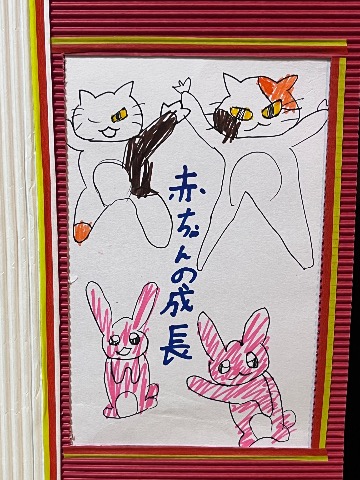 赤ちゃんの成長